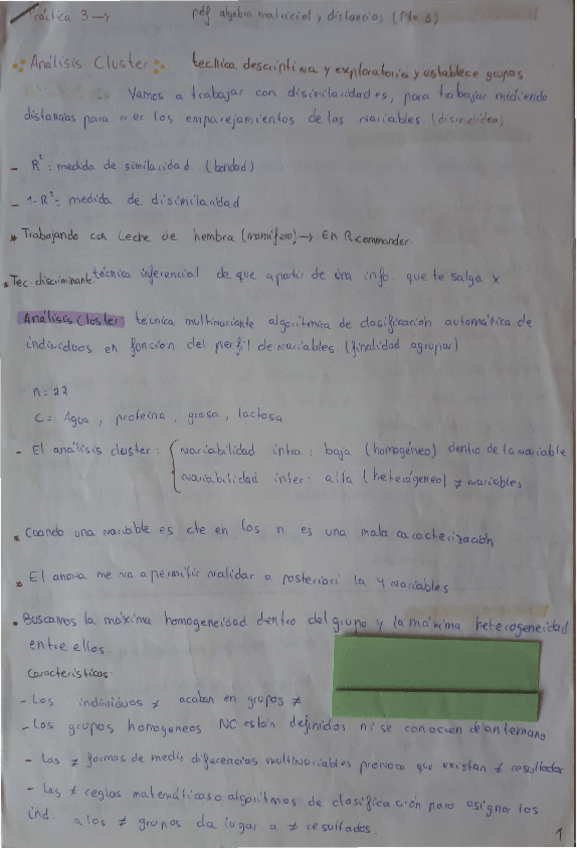 Práctica 3 → pdf algebra matricial y distancias (Pte 3)
Análisis Cluster: tecnica descriptiva y exploratoria y establece grupos
Vamos a trabajar con disimilaridades, para trabajar midiendo
distancias para ver los emparejamientos de las variables
- R²: medida de similaridad (bondad)
- 1-R²= medida de disimilaridad
* Trabajando con Leche de hembra (mamífero) → En Rcommander.
* Tec. discriminante: técnica inferencial de que a partir de una info. que te salga x
Análisis Cluster: técnica multivariante algorítmica de clasificación automática de
individuos en función del perfil de variables. (finalidad agrupar)
n = 22
C = Agua, proteina, grasa, lactosa
- El análisis cluster: { variabilidad intra: baja (homogéneo) dentro de la variable
variabilidad inter: alta (heterógeneo) ≠ variables
* Cuando una variable es cte en los n es una mala caracterización
* El anova me va a permitir validar a posteriori la 4 variables
• Buscamos la máxima homogeneidad dentro del grupo y la máxima heterogeneidad
entre ellos.
Características:
- Los individuos ≠ acaban en grupos ≠
- Los grupos homogeneos NO están definidos ni se conocen de antemano
- Las ≠ formas de medir diferencias multivariables provoca que existan ≠ resultados
- Las ≠ reglas matemáticas o algoritmos de clasificación para asignar los
ind. a los ≠ grupos da lugar a ≠ resultados.
1